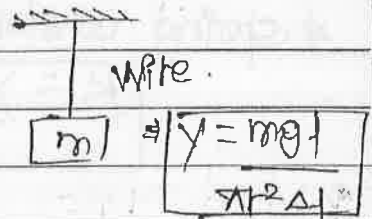 Wire.
m
⇒ Y = mgl
πr²Δl